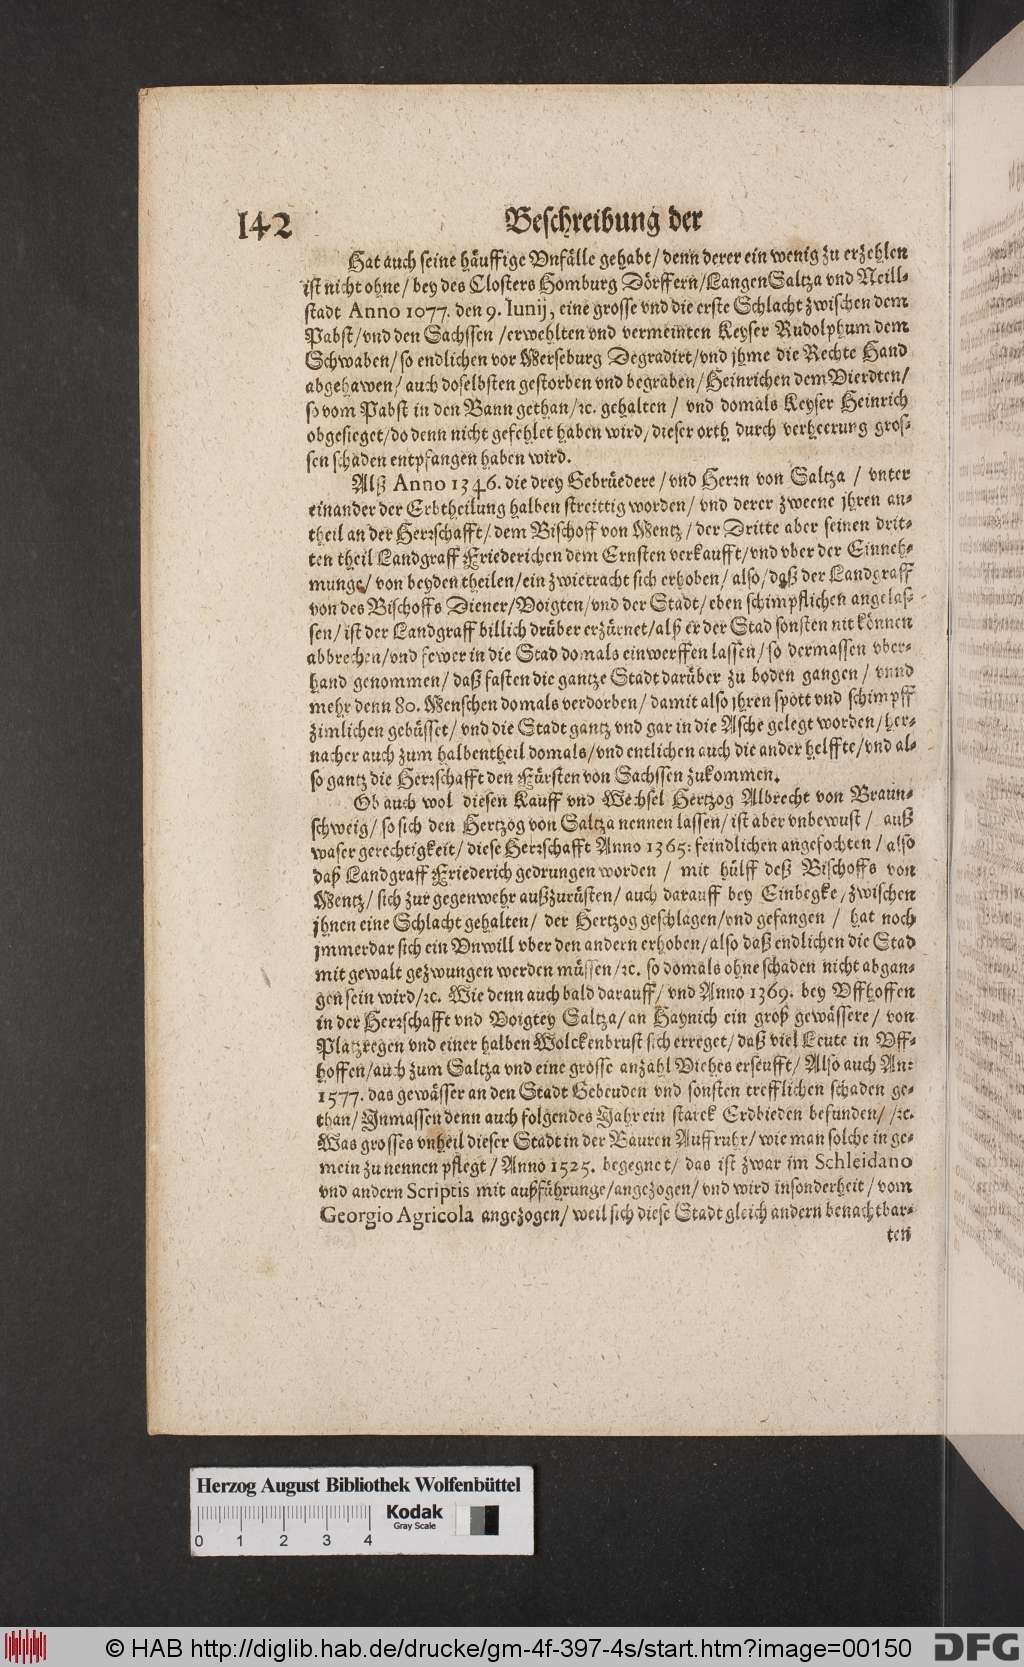 142 Beschreibung der
Hat auch seine häuffige Vnfälle gehabt/ denn derer ein wenig zu erzehlen
ist nicht ohne/ bey des Closters Homburg Dörffern/ LangenSaltza vnd Neill-
stadt Anno 1077. den 9. Iunij, eine grosse vnd die erste Schlacht zwischen dem
Pabst/ vnd den Sachssen / erwehlten vnd vermeinten Keyser Rudolphum dem
Schwaben/ so endlichen vor Merseburg Degradirt/ vnd jhme die Rechte Hand
abgehawen/ auch doselbsten gestorben vnd begraben/ Heinrichen dem Vierdten/
so vom Pabst in den Bann gethan/ ꝛc. gehalten / vnd domals Keyser Heinrich
obgesieget/ do denn nicht gefehlet haben wird/ dieser orth durch verheerung gros-
sen schaden entpfangen haben wird.
Alß Anno 1346. die drey Gebrüedere / vnd Herrn von Saltza / vnter
einander der Erbtheilung halben streittig worden/ vnd derer zweene jhren an-
theil an der Herrschafft/ dem Bischoff von Mentz/ der Dritte aber seinen drit-
ten theil Landgraff Friederichen dem Ernsten verkaufft/ vnd vber der Einneh-
munge/ von beyden theilen/ ein zwietracht sich erhoben/ also/ daß der Landgraff
von des Bischoffs Diener/ Voigten/ vnd der Stadt/ eben schimpflichen angelas-
sen/ ist der Landgraff billich drüber erzürnet/ alß er der Stad sonsten nit können
abbrechen/ vnd fewer in die Stad domals einwerffen lassen/ so dermassen vber-
hand genommen/ daß fasten die gantze Stadt darüber zu boden gangen/ vnnd
mehr denn 80. Menschen domals verdorben/ damit also jhren spott vnd schimpff
zimlichen gebüsset/ vnd die Stadt gantz vnd gar in die Asche gelegt worden/ her-
nacher auch zum halbentheil domals/ vnd entlichen auch die ander helffte/ vnd al-
so gantz die Herrschafft den Fürsten von Sachssen zukommen.
Ob auch wol diesen Kauff vnd Wechsel Hertzog Albrecht von Braun-
schweig/ so sich den Hertzog von Saltza nennen lassen/ ist aber vnbewust / auß
waser gerechtigkeit/ diese Herrschafft Anno 1365: feindlichen angefochten / also
daß Landgraff Friederich gedrungen worden / mit hülff deß Bischoffs von
Mentz/ sich zur gegenwehr außzurüsten/ auch darauff bey Einbegke/ zwischen
jhnen eine Schlacht gehalten/ der Hertzog geschlagen/ vnd gefangen / hat noch
jmmerdar sich ein Vnwill vber den andern erhoben/ also daß endlichen die Stad
mit gewalt gezwungen werden müssen/ ꝛc. so domals ohne schaden nicht abgan-
gen sein wird/ ꝛc. Wie denn auch bald darauff/ vnd Anno 1369. bey Vffhoffen
in der Herrschafft vnd Voigtey Saltza/ an Haynich ein groß gewässere/ von
Platzregen vnd einer halben Wolckenbrust sich erreget/ daß viel Leute in Vff-
hoffen/ auch zum Saltza vnd eine grosse anzahl Viehes erseufft/ Also auch An:
1577. das gewässer an den Stadt Gebeuden vnd sonsten trefflichen schaden ge-
than/ Inmassen denn auch folgendes Jahr ein starck Erdbieden befunden/ /ꝛc.
Was grosses vnheil dieser Stadt in der Bauren Auffruhr/ wie man solche in ge-
mein zu nennen pflegt / Anno 1525. begegnet/ das ist zwar im Schleidano
vnd andern Scriptis mit außführunge/ angezogen/ vnd wird insonderheit/ vom
Georgio Agricola angezogen/ weil sich diese Stadt gleich andern benachtbar-
ten
Herzog August Bibliothek Wolfenbüttel
Kodak
Gray Scale
0 1 2 3 4
© HAB http://diglib.hab.de/drucke/gm-4f-397-4s/start.htm?image=00150
DFG